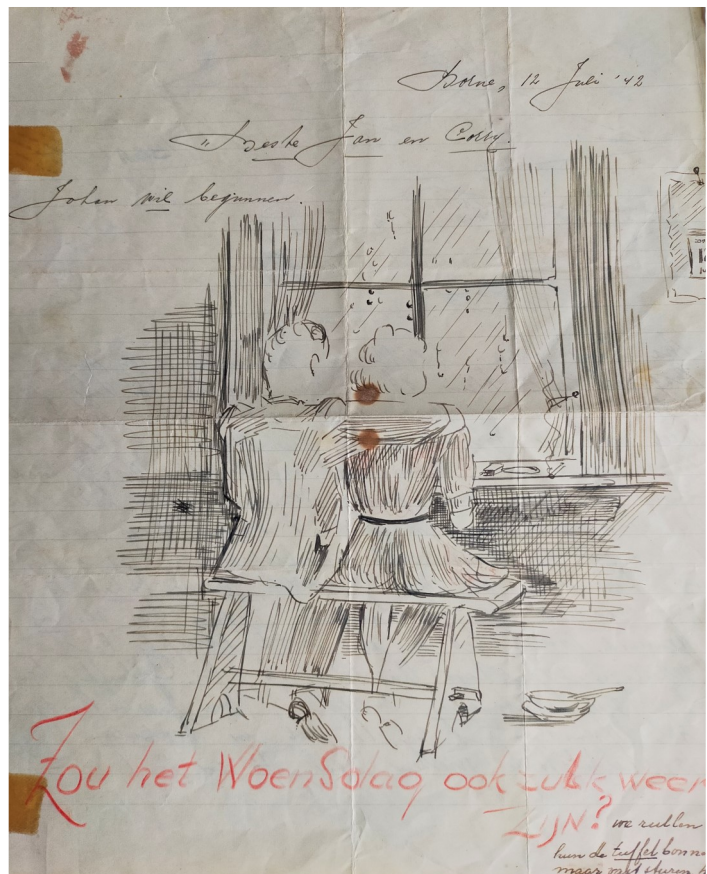 Borne, 12 Juli '42
"Beste Jan en Corry.
Johan wil beginnen.
Zou het Woensdag ook zulk weer
ZIJN?
we zullen
hun de tuffel bonne
maar met sturen